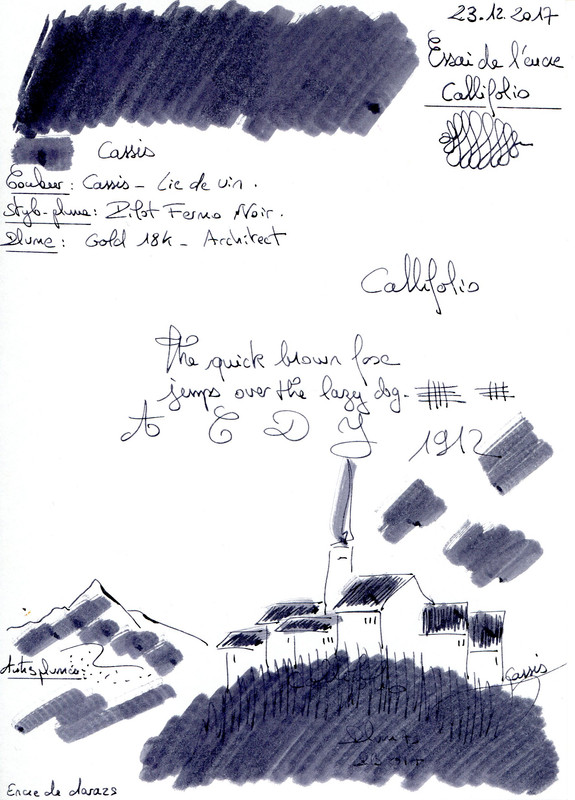 23.12.2017
Essai de l'encre
Callifolio
Cassis
Couleur : Cassis - Lie de vin .
Stylo-plume : Pilot Fermo Noir .
Plume : Gold 18k - Architect
Callifolio
The quick brown foxe
jemps over the lazy dog.
A C D Y 1912
Cassis
Encre de